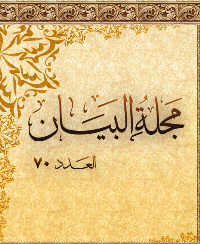 مجلة البيان
العدد ٧٠